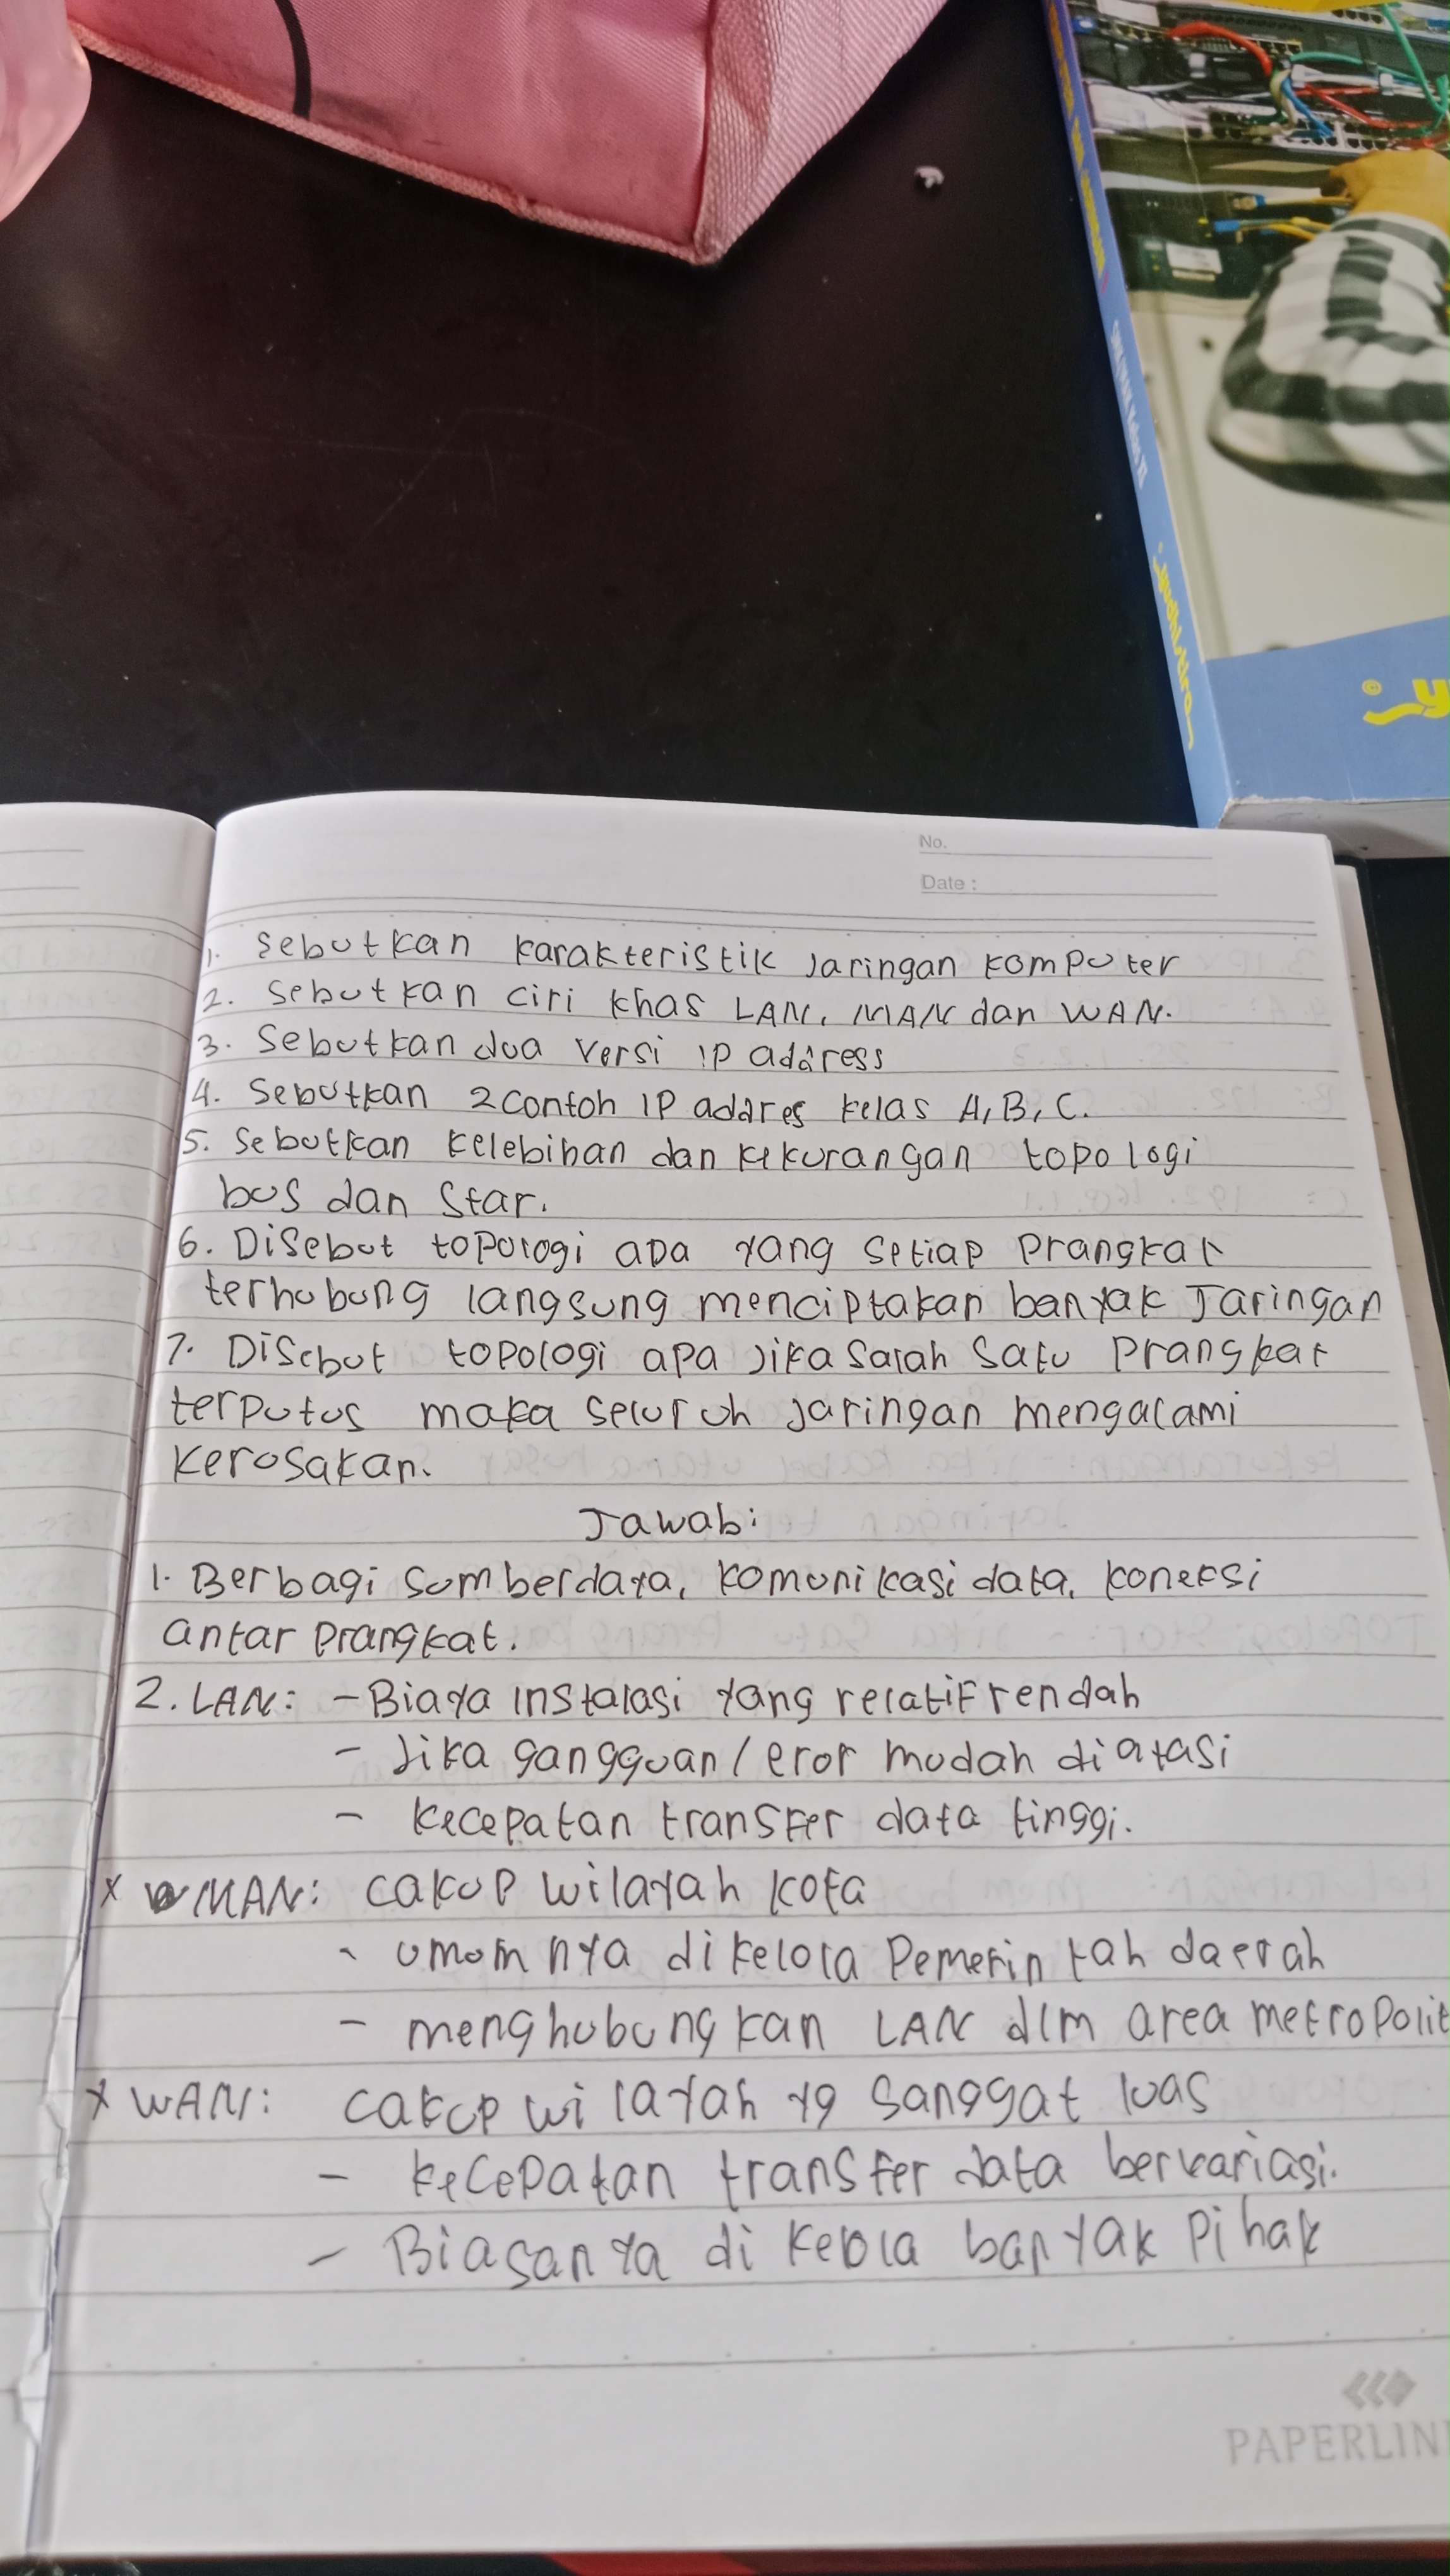 No.
Date :
1. Sebutkan karakteristik Jaringan komputer
2. Sebutkan ciri khas LAN, MAN dan WAN.
3. Sebutkan dua versi IP address
4. Sebutkan 2 contoh IP addres kelas A, B, C.
5. Sebutkan kelebihan dan kekurangan topologi
bus dan Star.
6. Disebut topologi apa yang setiap prangkat
terhubung langsung menciptakan banyak Jaringan
7. Disebut topologi apa Jika salah satu prangkat
terputus maka seluruh jaringan mengalami
kerusakan.
Jawab:
1. Berbagi sumberdaya, komunikasi data, koneksi
antar prangkat.
2. LAN: - Biaya instalasi yang relatif rendah
- Jika gangguan / eror mudah diatasi
- kecepatan transfer data tinggi.
x MAN: cakup wilayah kota
- umumnya dikelola Pemerintah daerah
- menghubungkan LAN dlm area metropolit
x WAN: cakup wilayah yg sanggat luas
- kecepatan transfer data bervariasi.
- Biasanya di kelola banyak pihak
PAPERLIN
yudhistira